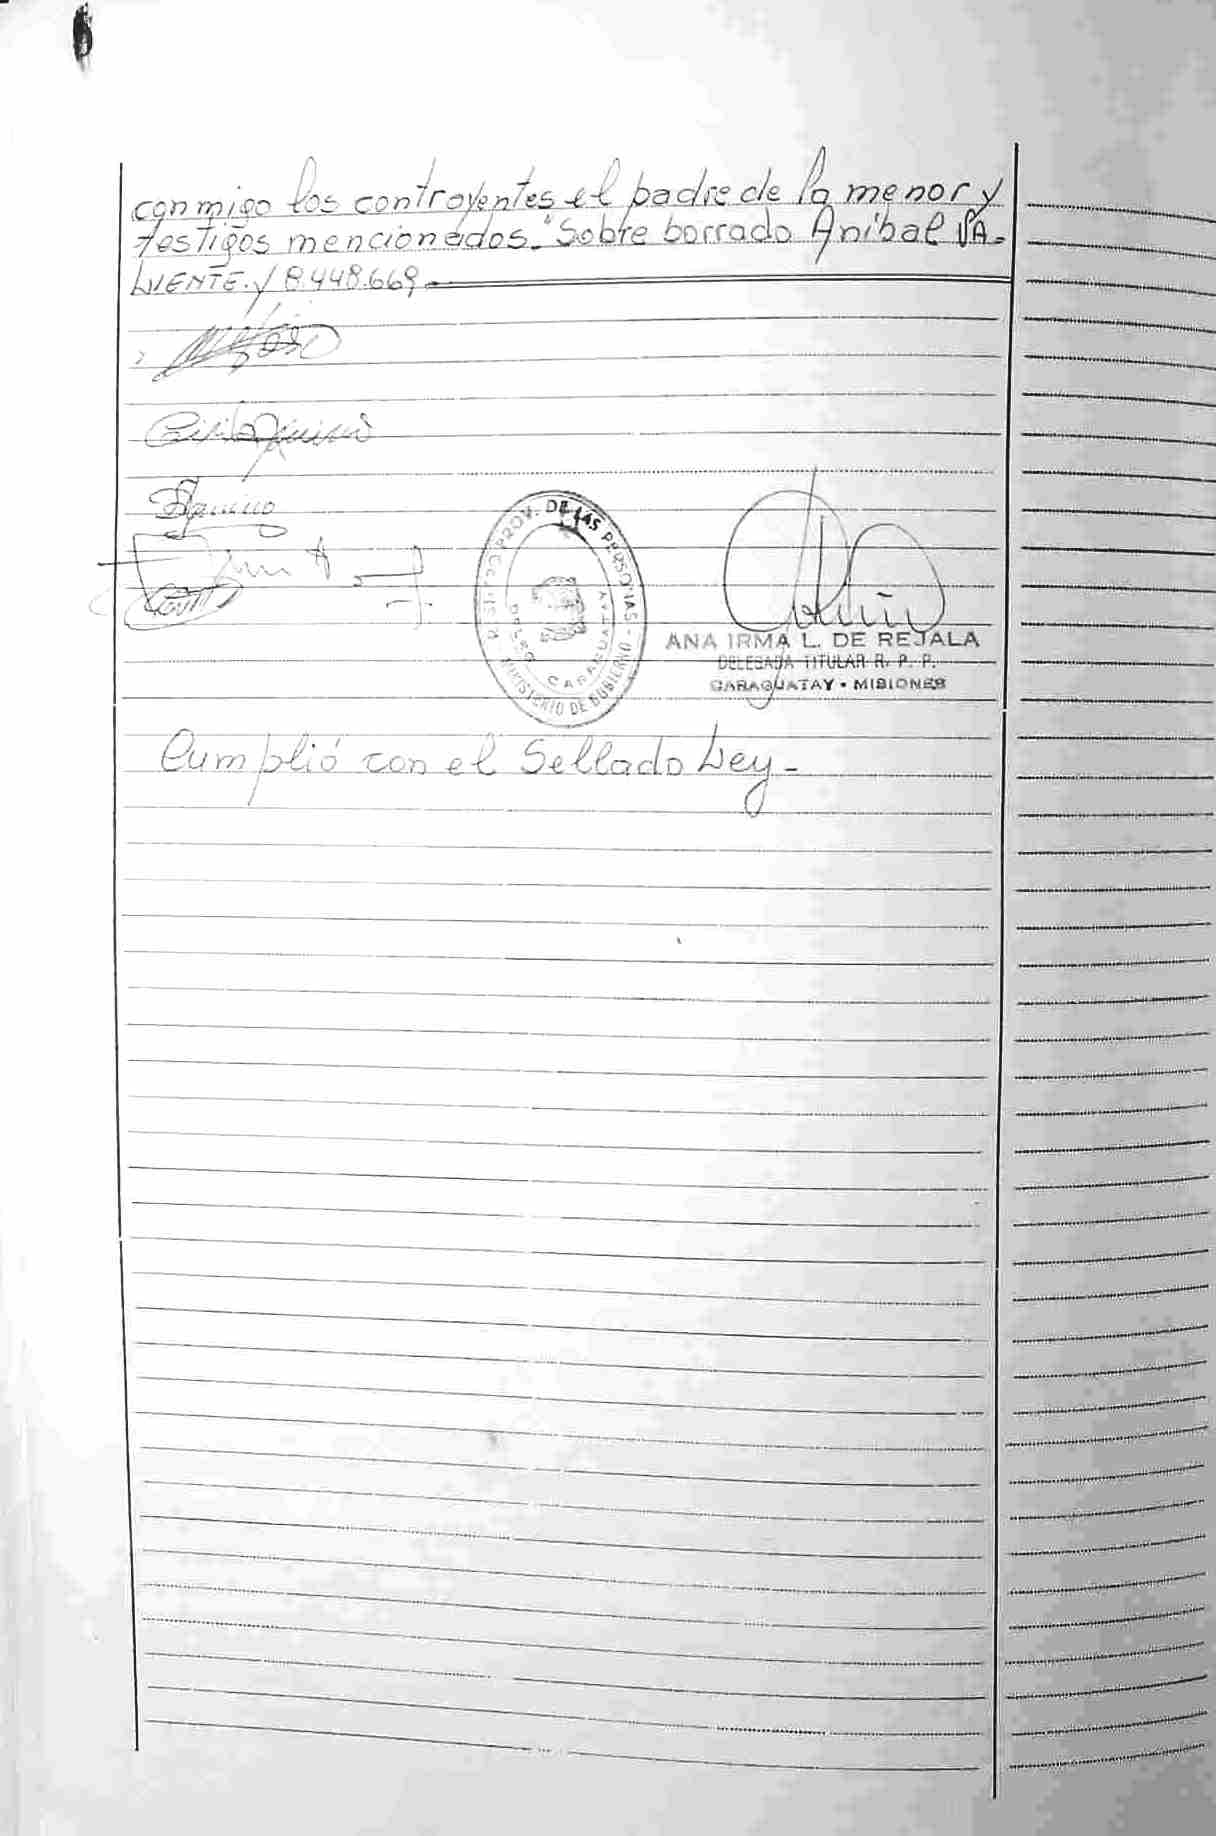 conmigo los contrayentes el padre de la menor y
testigos mencionados.- Sobre borrado Anibal VA-
LIENTE. y 8.448.669.
Aquino
REGISTRO PROV. DE LAS PERSONAS -
MINISTERIO DE GOBIERNO -
CARAGUATAY
ANA IRMA L. DE REJALA
DELEGADA TITULAR R. P. P.
CARAGUATAY - MISIONES
Cumplió con el Sellado Ley -